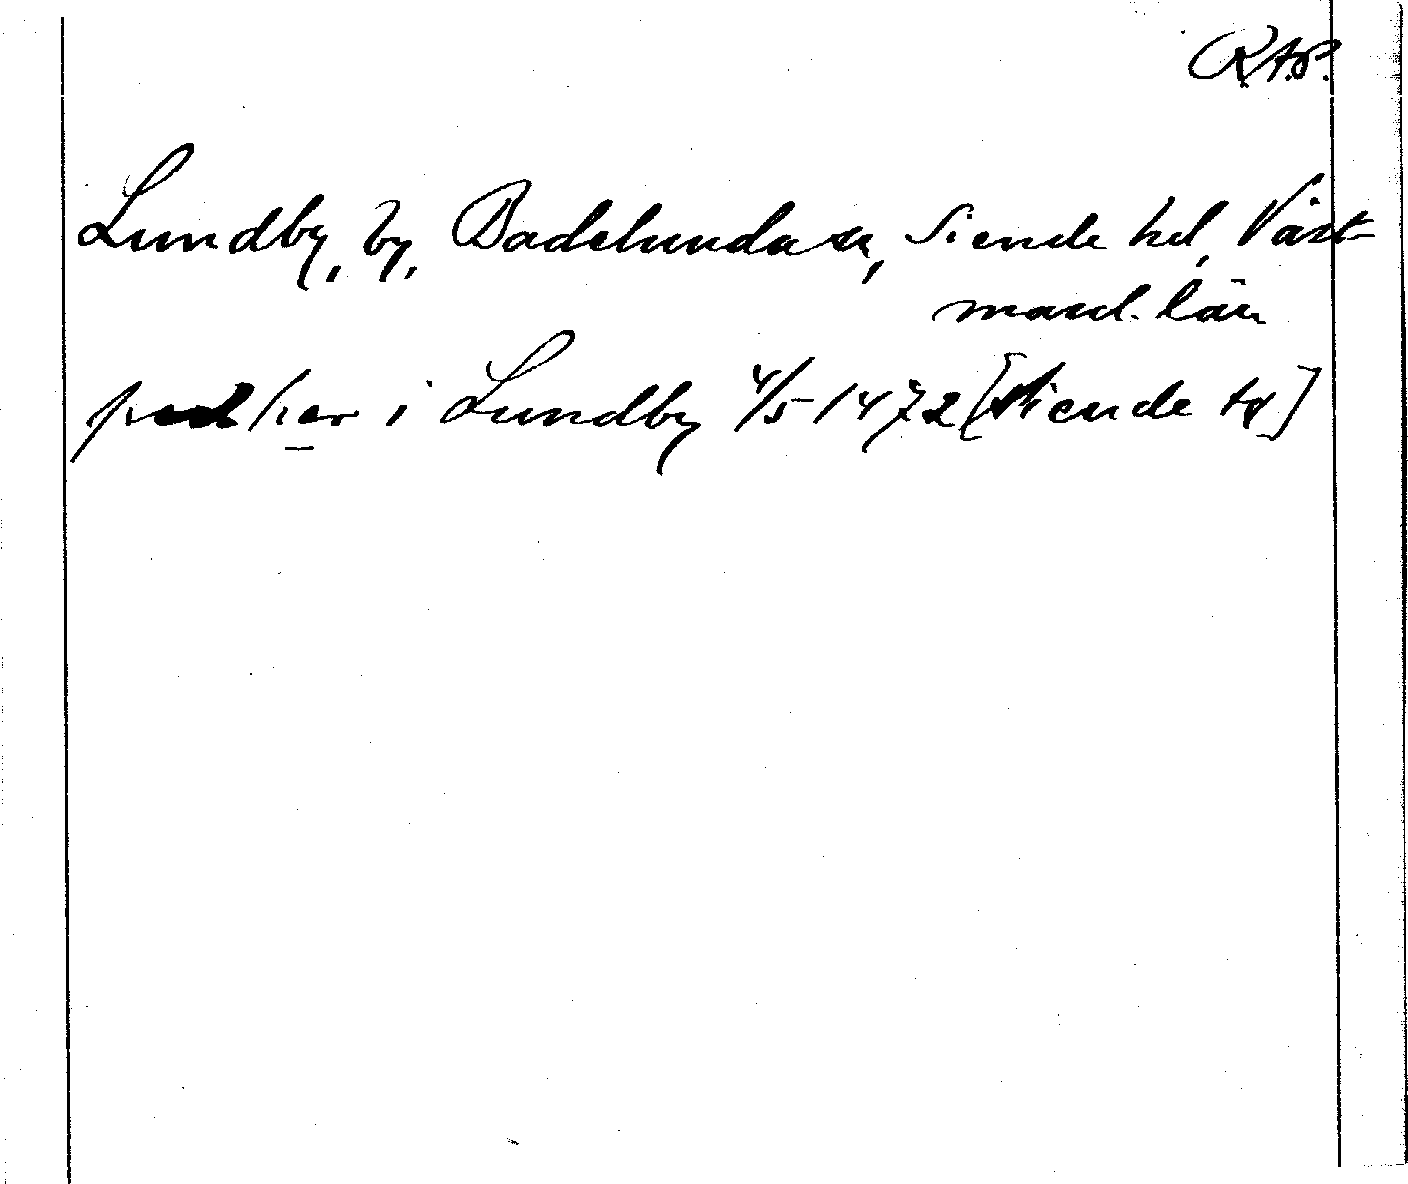 RAP.
Lundby, by, Badelunda sn, Siende hd, Väst-
manl. län
i Lundby 4/5 1472 [Siende tg]